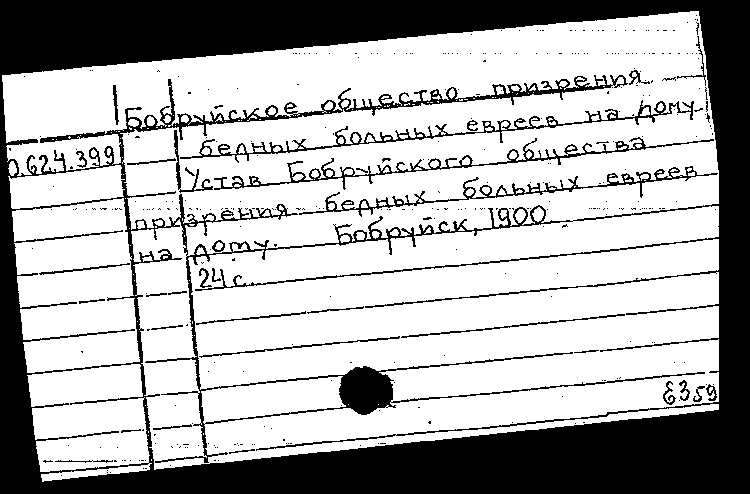 Бобруйское общество призрения
бедных больных евреев на дому
0.624.399
Устав Бобруйского общества
призрения бедных больных евреев
на дому. Бобруйск, 1900
24 с.